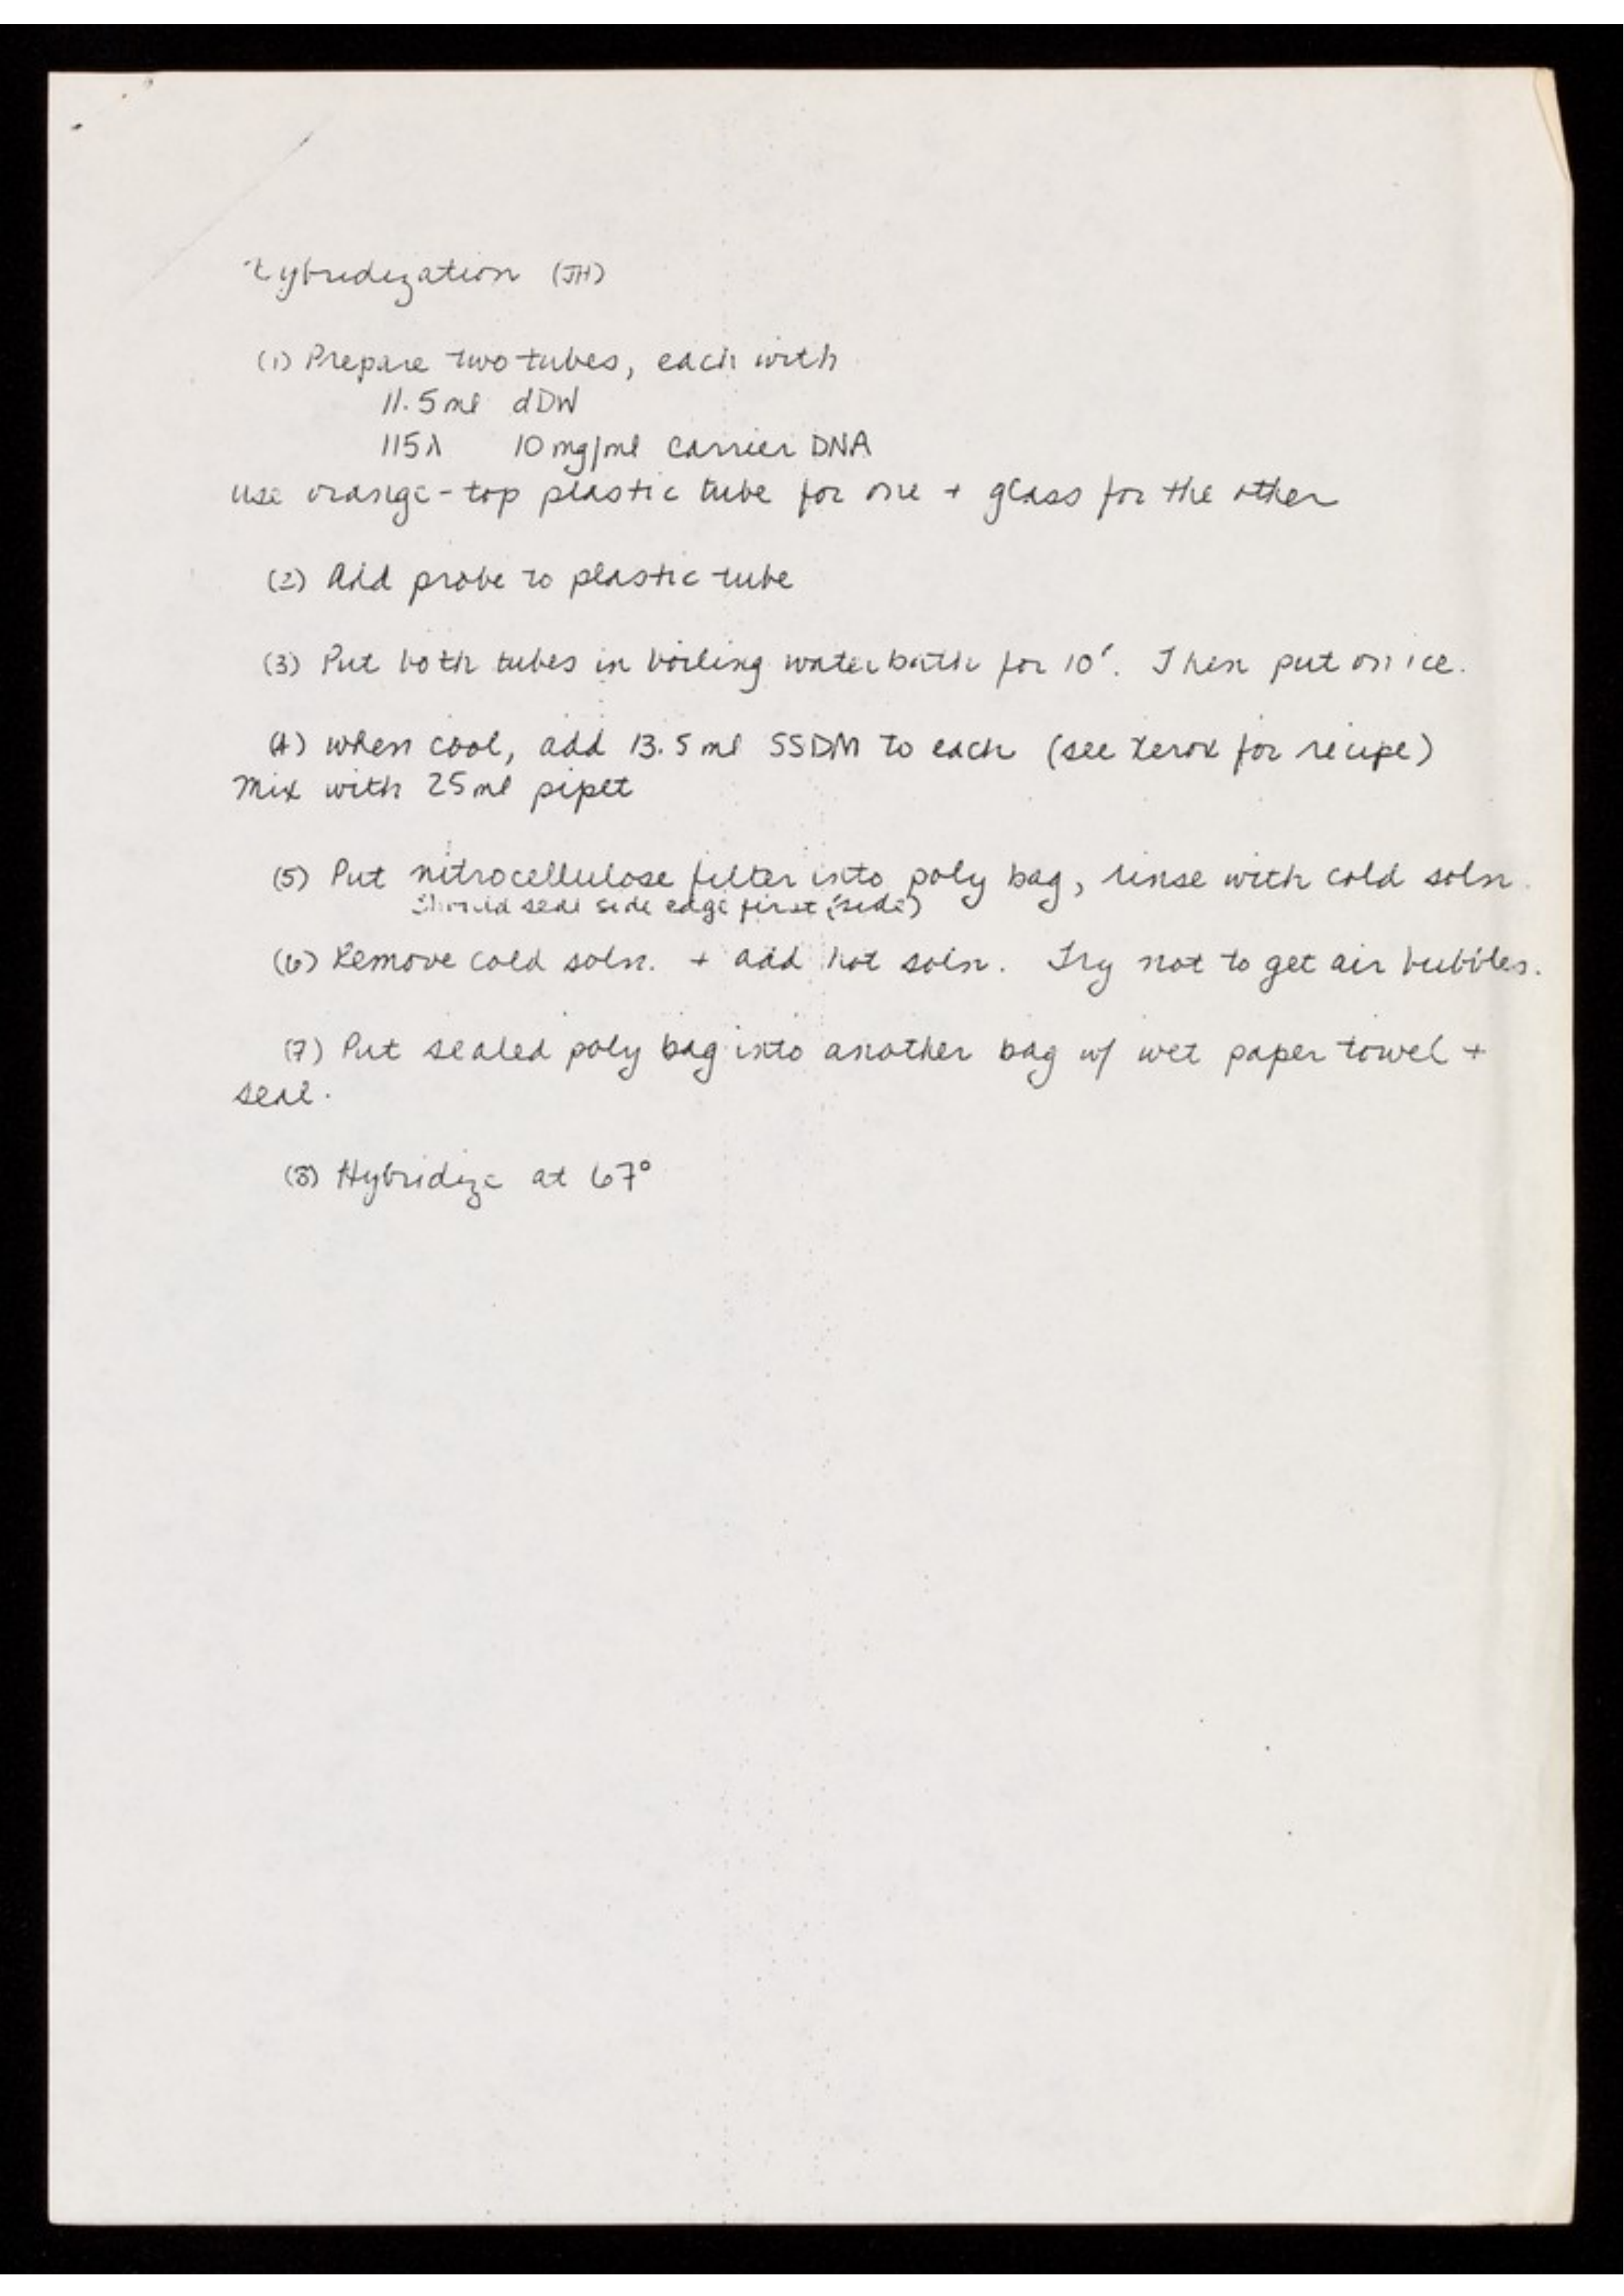 Hybridization (JH)
(1) Prepare two tubes, each with
11.5 ml dDW
115λ 10 mg/ml carrier DNA
use orange-top plastic tube for one + glass for the other
(2) Add probe to plastic tube
(3) Put both tubes in boiling water bath for 10'. Then put on ice.
(4) when cool, add 13.5 ml SSDM to each (see xerox for recipe)
Mix with 25 ml pipet
(5) Put nitrocellulose filter into poly bag, rinse with cold soln.
Should seal side edge first (side)
(6) Remove cold soln. + add hot soln. Try not to get air bubbles.
(7) Put sealed poly bag into another bag w/ wet paper towel +
seal.
(8) Hybridize at 67°